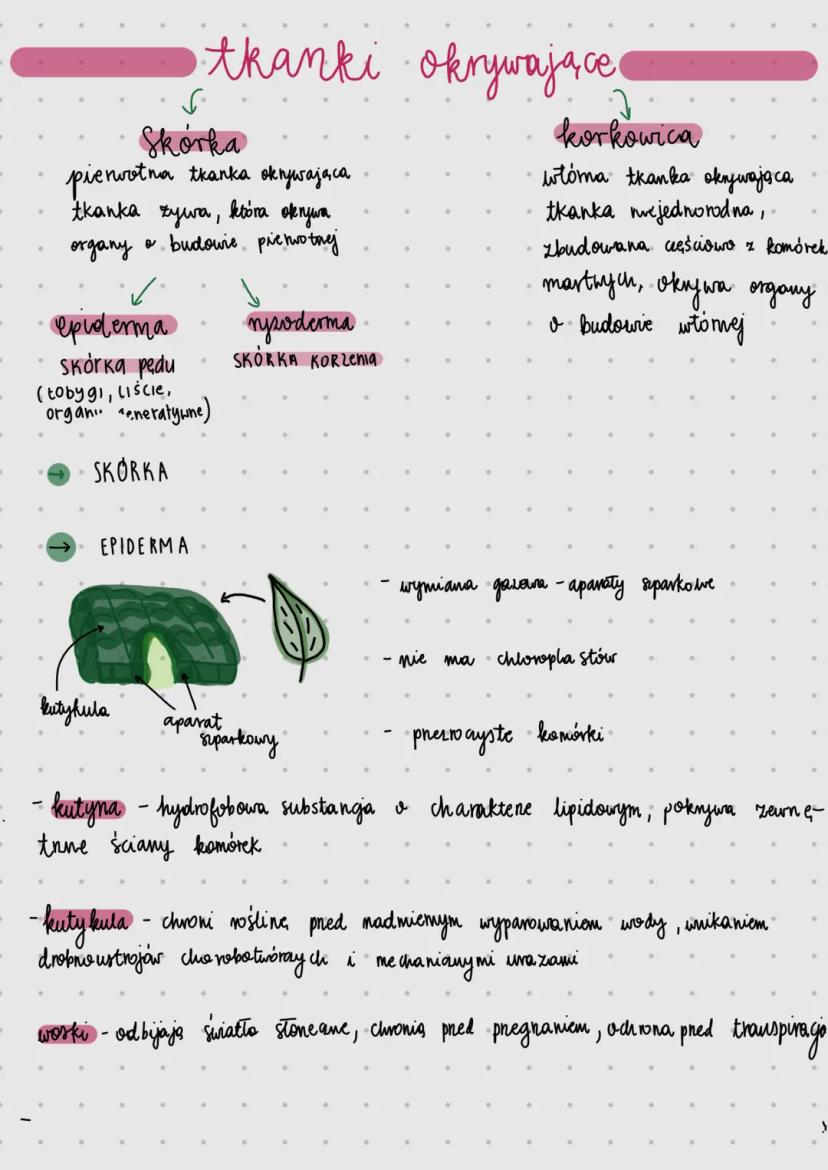 tkanki okrywające
skórka
pierwotna tkanka okrywająca
tkanka żywa, która okrywa
organy o budowie pierwotnej
korkowica
wtórna tkanka okrywająca
tkanka niejednorodna,
zbudowana częściowo z komórek
martwych, okrywa organy
o budowie wtórnej
epiderma
SKÓRKA PĘDU
(łodygi, LIŚCIE,
organy generatywne)
ryzoderma
SKÓRKA KORZENIA
→ SKÓRKA
→ EPIDERMA
- wymiana gazowa - aparaty szparkowe
- nie ma chloroplastów
- przezroczyste komórki
kutykula
aparat
szparkowy
- kutyna - hydrofobowa substancja o charakterze lipidowym, pokrywa zewnę-
trzne ściany komórek
- kutykula - chroni roślinę przed nadmiernym wyparowaniem wody, wnikaniem
drobnoustrojów chorobotwórczych i mechanicznymi urazami
woski - odbijają światło słoneczne, chronią przed przegrzaniem, ochrona przed